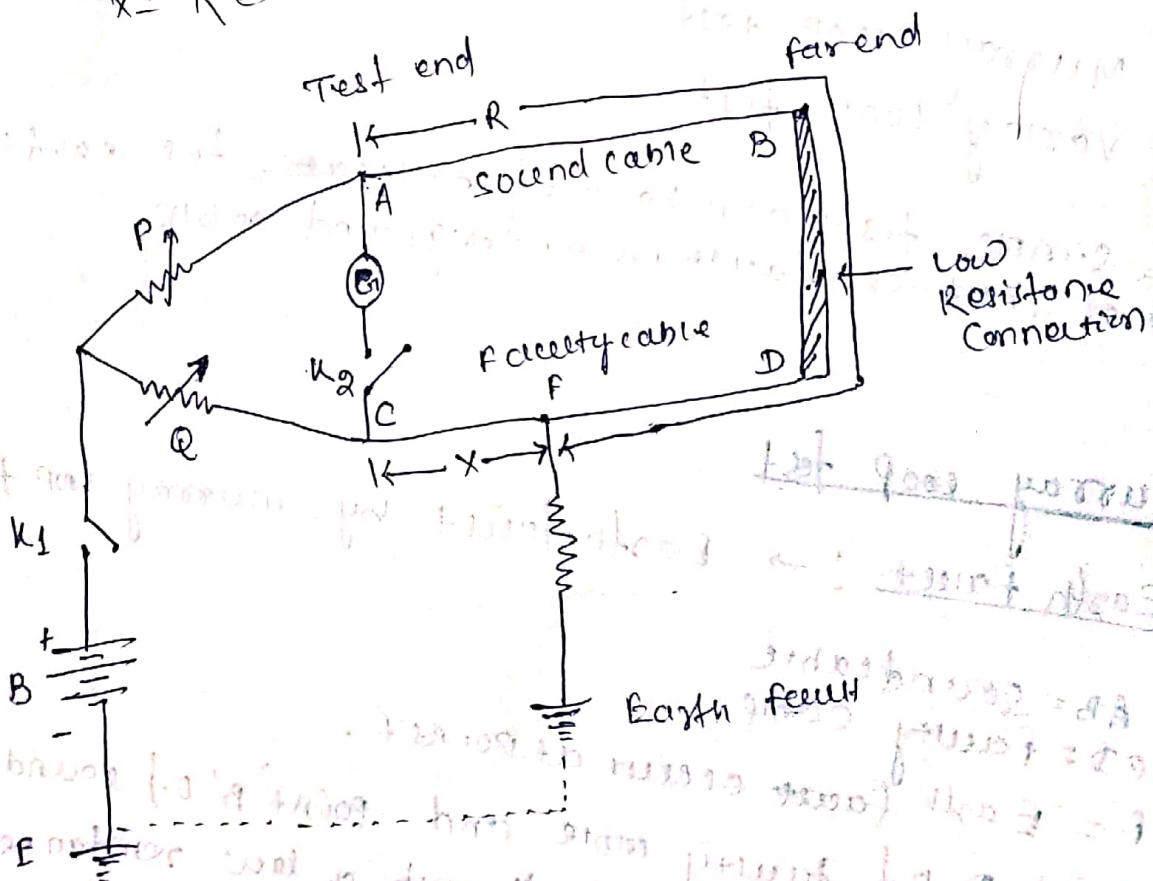 x = R
Test end
far end
R
A
B
Sound cable
P
G
Low
Resistance
Connection
Faculty cable
F
D
K2
C
Q
X
K1
+
B
-
Earth fault
E